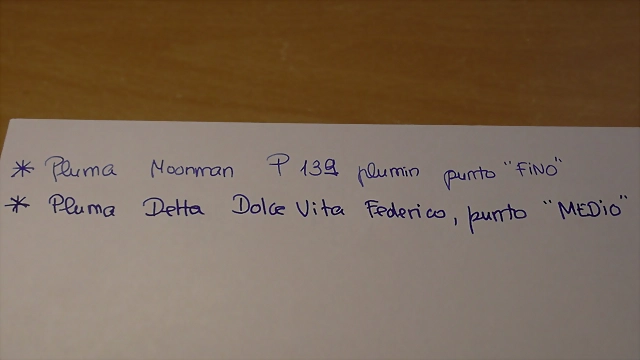 * Pluma Moonman P 139 plumin punto "FiNO"
* Pluma Detta Dolce Vita Federico, punto "MEDiO"